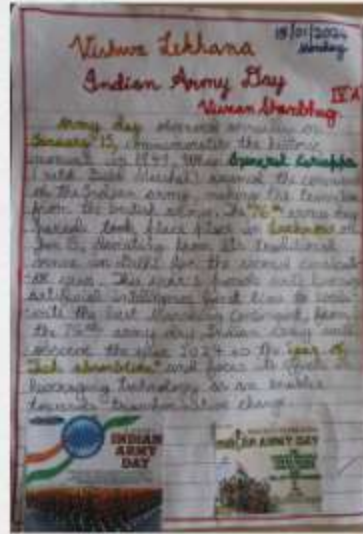 15/01/2024
Monday
Vishva Lekhana
Indian Army Day
IV A
Vivaan Shanbhag
Army day observed annually on
January 15, commemorates the historic
moment in 1949, When General Cariappa
(until Field Marshal) assumed the command
of the Indian army, marking the transfer
from the british army. The 76th army day
parade took place in Lucknow on
Jan 15, deviating from its traditional
venue in delhi for the second
year. This year's parade
artificial intelligence
with the best Marching Contingent, from
the 76th army day, Indian army will
observe the year 2024 as the "year of
Tech absorption" and focus
leveraging technology as an enabler
towards transformative change.
INDIAN
ARMY
DAY
INDIAN ARMY DAY